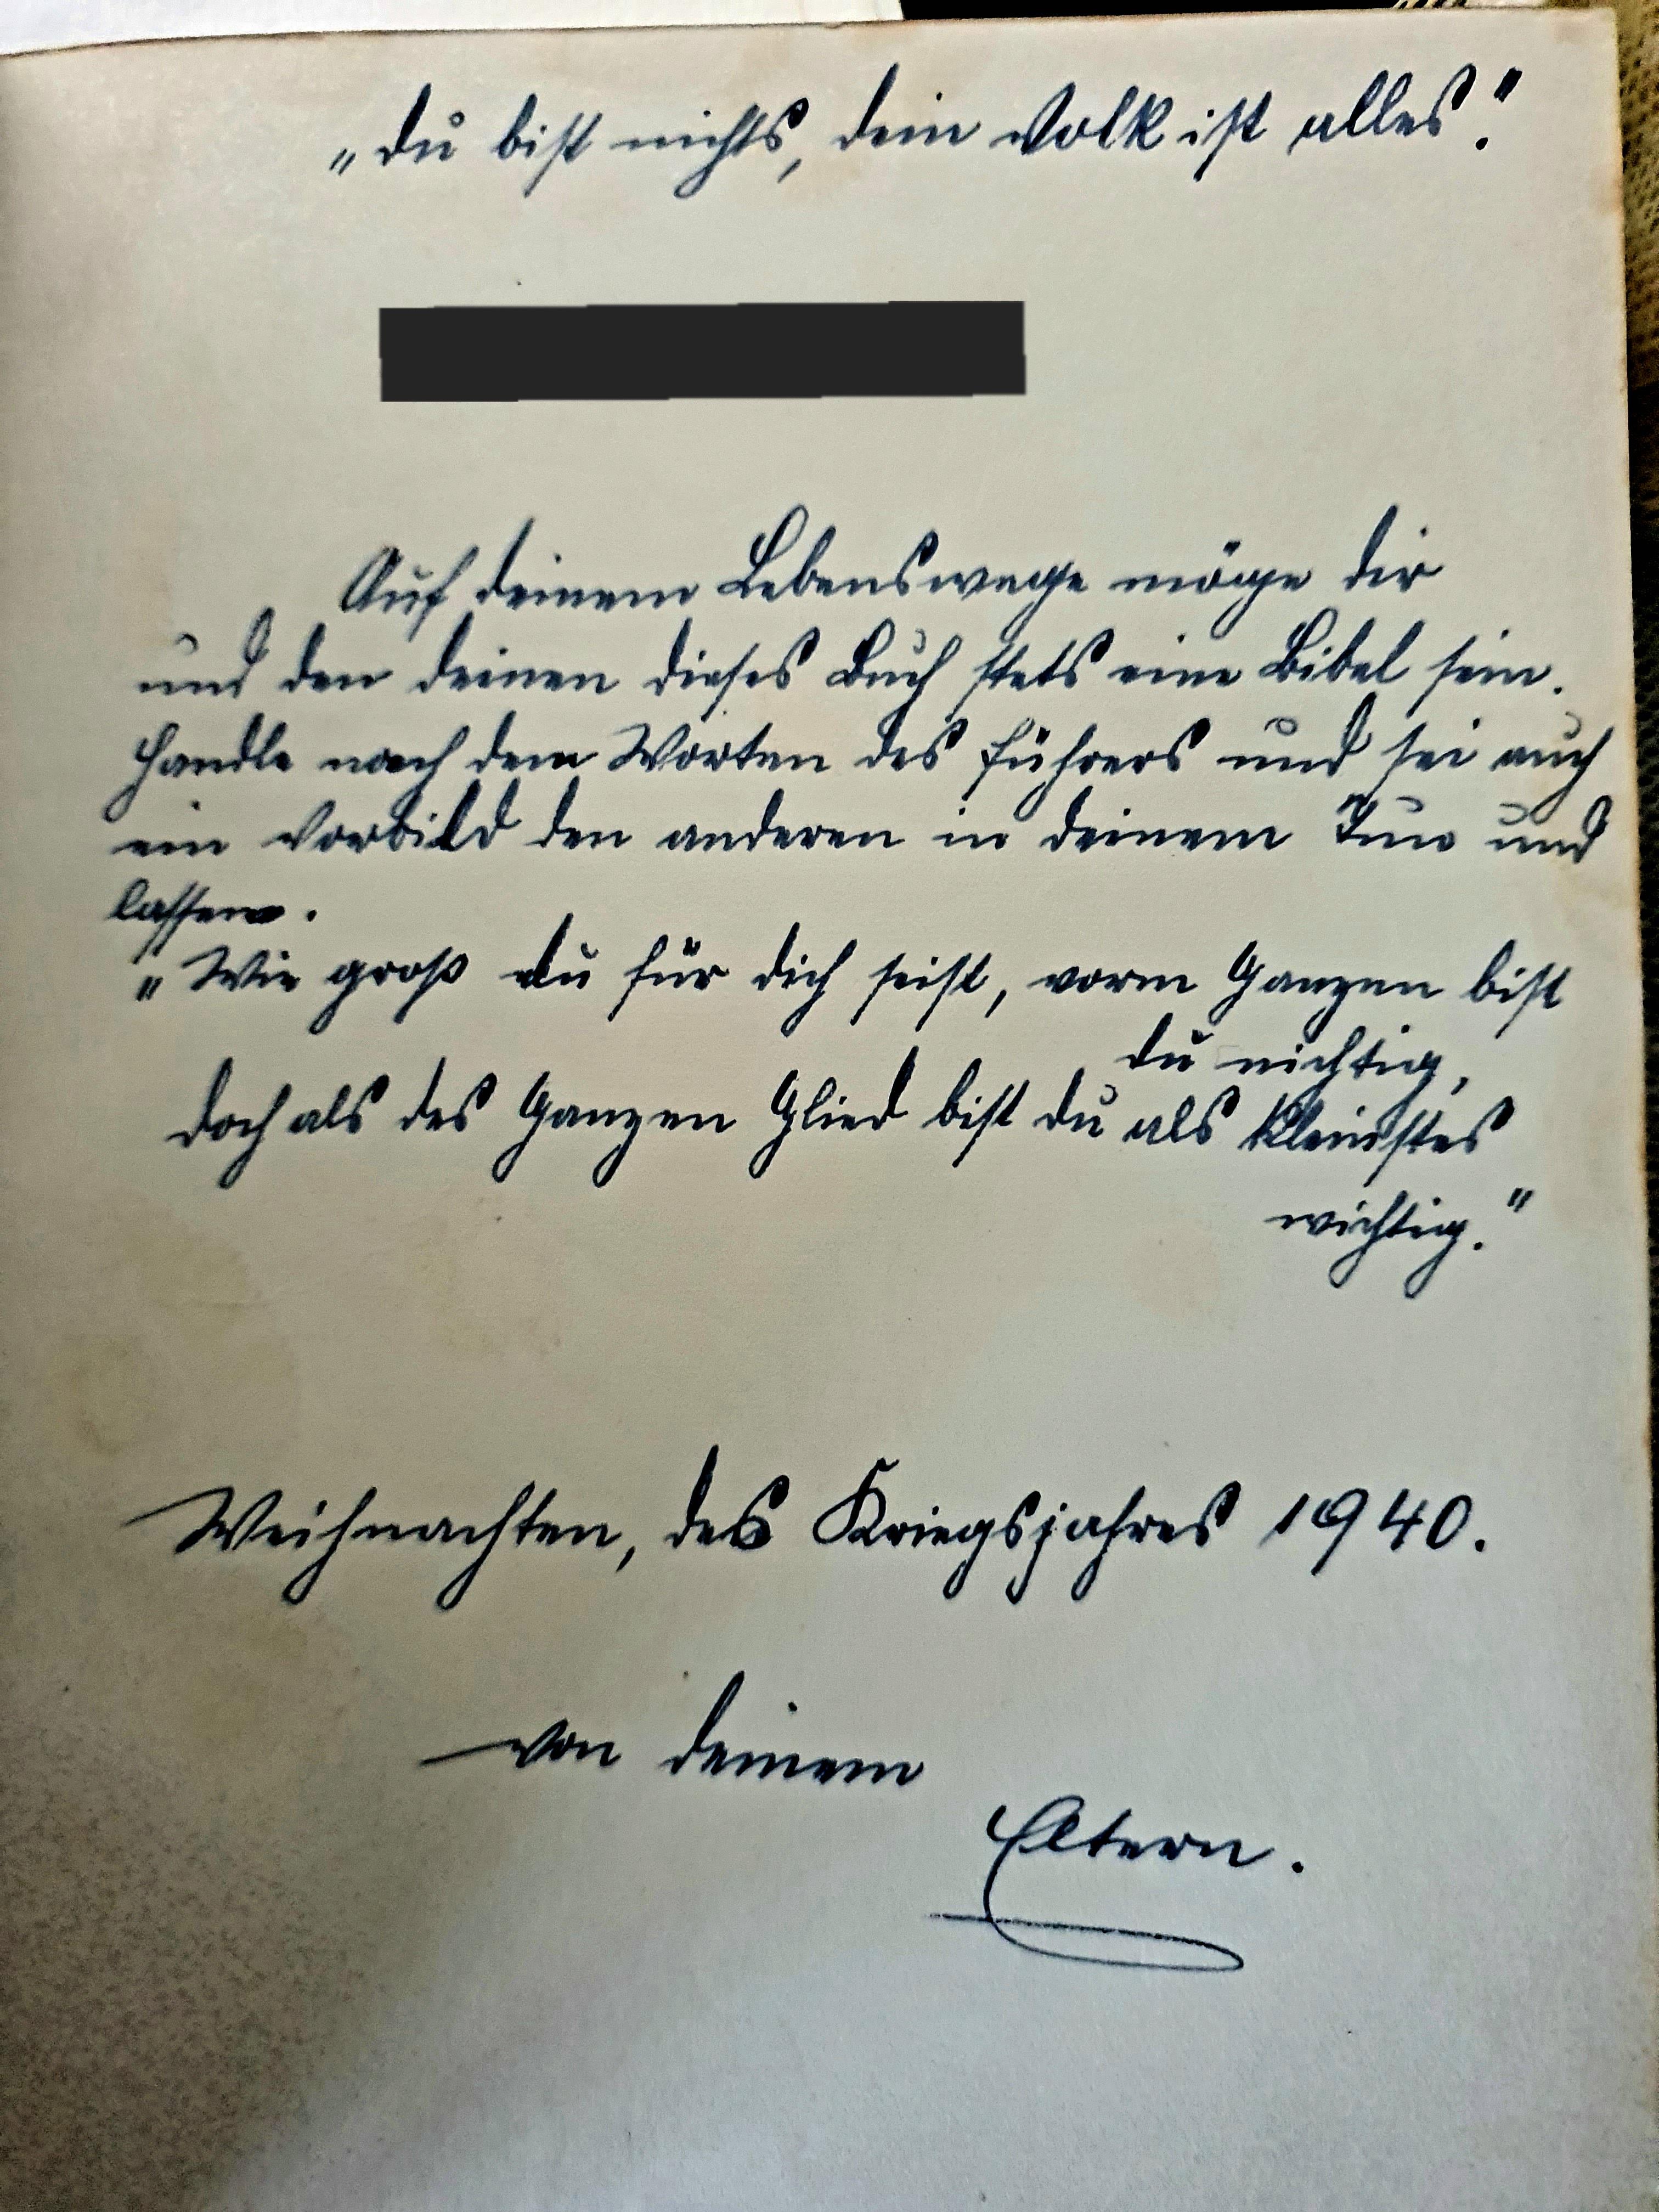 „Du bist nichts, dein Volk ist alles."
Auf deinem Lebenswege möge dir
und den deinen dieses Buch stets eine Bibel sein.
Handle nach dem Worten des Führers und sei auch
ein Vorbild den anderen in deinem Tun und
lassen.
„Wie groß du für dich seist, vorm Ganzen bist
du nichtig,
doch als des Ganzen Glied bist du als kleinstes
wichtig."
Weihnachten, des Kriegsjahres 1940.
von deinem
Eltern.